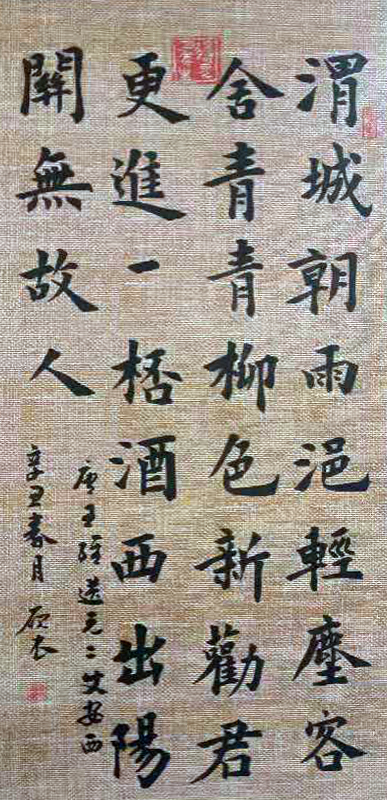 渭城朝雨浥輕塵容
舍青青柳色新勸君
更進一桮酒西出陽
關無故人
唐王維送元二使安西
辛丑春月